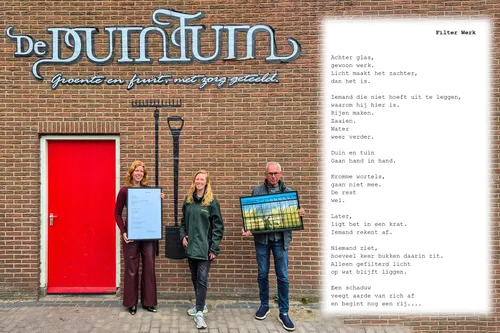 De DuinTuin
Groente en fruit, met zorg geteeld.
Filter Werk
Achter glas,
gewoon werk.
Licht maakt het zachter,
dan het is.
Iemand die niet hoeft uit te leggen,
waarom hij hier is.
Rijen maken.
Zaaien.
Water
weer verder.
Duin en tuin
Gaan hand in hand.
Kromme wortels,
gaan niet mee.
De rest
wel.
Later,
ligt het in een krat.
Iemand rekent af.
Niemand ziet,
hoeveel keer bukken daarin zit.
Alleen gefilterd licht
op wat blijft liggen.
Een schaduw
veegt aarde van zich af
en begint nog een rij....